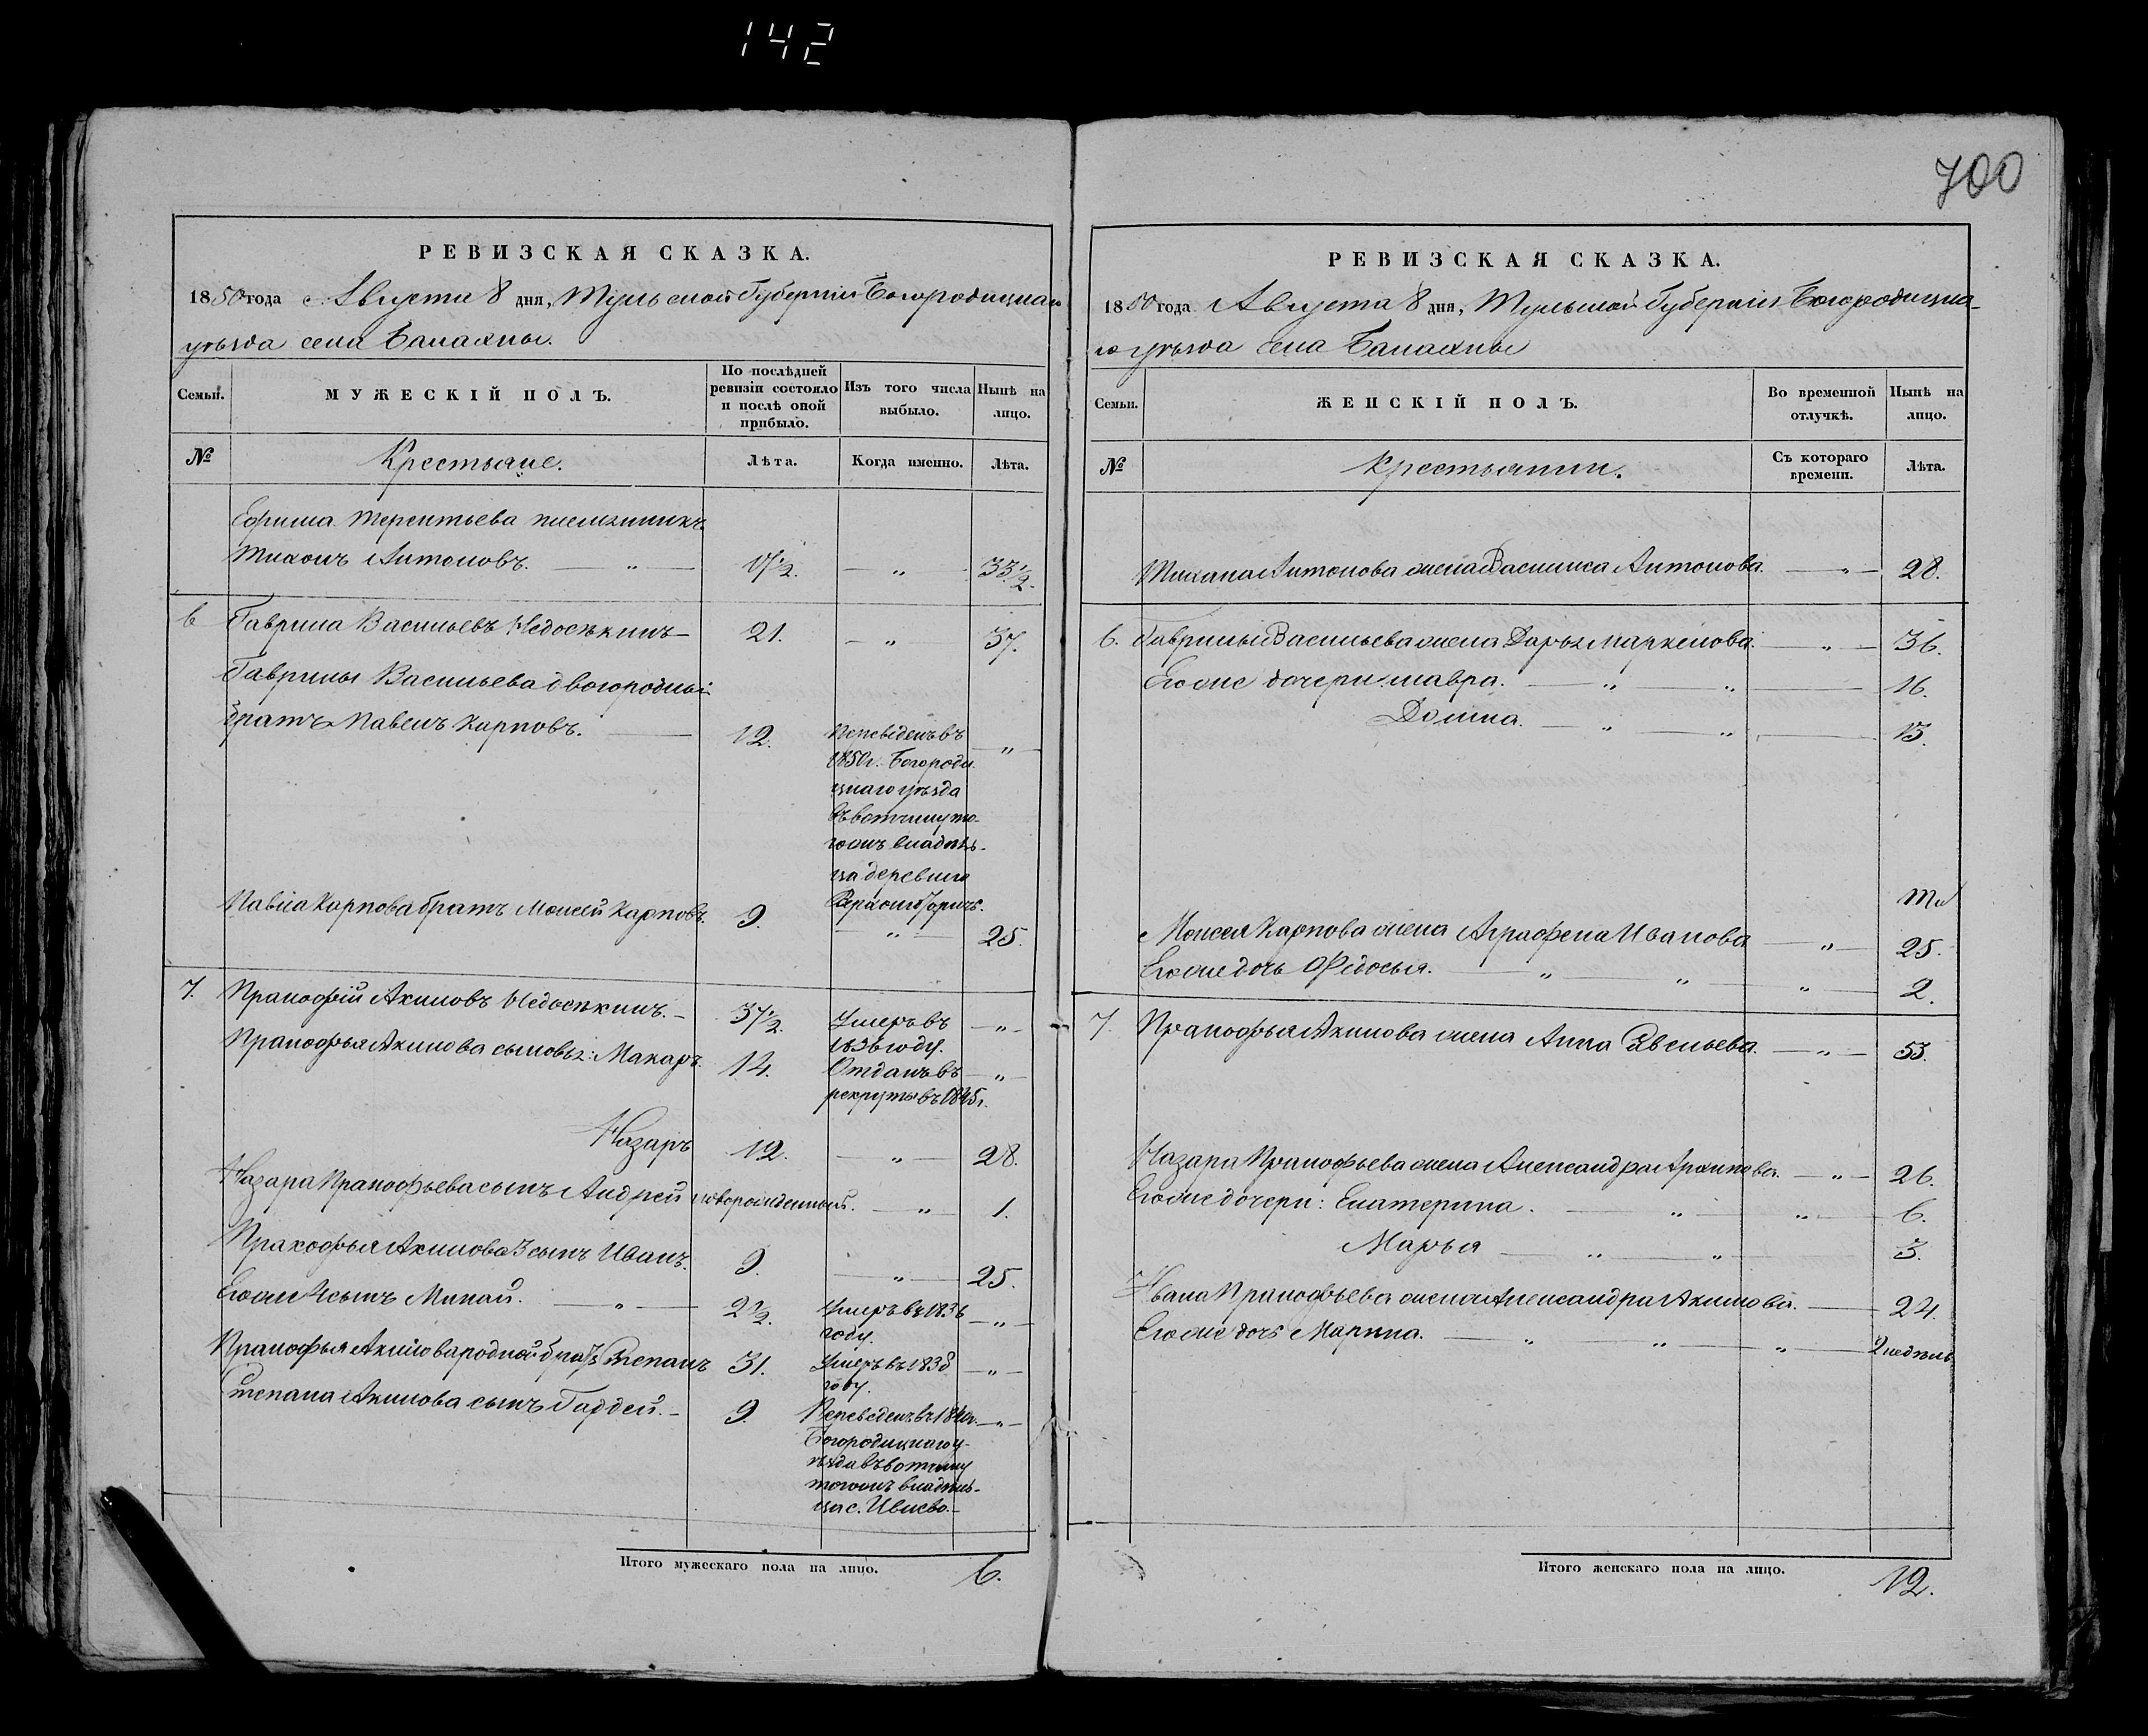 142
700
РЕВИЗСКАЯ СКАЗКА.
1850 года Августа 8 дня, Тульской Губерніи Богородицкаго
уѣзда села Балахны.
Семьи.
МУЖЕСКІЙ ПОЛЪ.
По послѣдней ревизіи состояло и послѣ оной прибыло.
Изъ того числа выбыло.
Нынѣ на лицо.
№
Крестьяне.
Лѣта.
Когда именно.
Лѣта.
Ефрима Терентьева племянникъ
Тихонъ Антоновъ. — „ — 17 1/2. — „ — 33 1/2.
6 Гаврила Васильевъ Недосѣкинъ — 21. — „ 37.
Гаврилы Васильева двоюродный
братъ Павелъ Карповъ. — 12. Переведенъ въ — „ —
1850 г. Богороди
цкаго уѣзда
въ вотчину то-
гожъ владѣль-
ца деревню
Павла Карпова братъ Моисей Карповъ. 9. — „ — 25.
7. Пракофій Акимовъ Недосѣкинъ. — 37 1/2. Умеръ въ — „ —
1836 году.
Пракофья Акимова сыновья: Макаръ. 14. Отданъ въ — „ —
рекруты въ 1845 г.
Назаръ 12. — „ — 28.
Назара Пракофьева сынъ Андрей новорожденный. — „ — 1.
Пракофья Акимова 3 сынъ Иванъ. 9. — „ — 25.
Егоже 4 сынъ Минай. — „ — 2 1/2. Умеръ въ 1836 — „ —
году.
Пракофья Акимова родной братъ Степанъ 31. Умеръ въ 1838 — „ —
году.
Степана Акимова сынъ Гордей. — 9. Переведенъ въ — „ —
Богородицкаго у-
ѣзда въ вотчину
тогожъ владѣль-
ца с. Ивлево. —
Итого мужескаго пола на лицо. 6.
РЕВИЗСКАЯ СКАЗКА.
1850 года Августа 8 дня, Тульской Губерніи Богородицка-
го уѣзда села Балахны
Семьи.
ЖЕНСКІЙ ПОЛЪ.
Во временной отлучкѣ.
Нынѣ на лицо.
№
Крестьянки.
Съ котораго времени.
Лѣта.
Тихана Антонова жена Василиса Антонова. — „ — 28.
6. Гаврилы Васильева жена Дарья Маркелова. — „ — 36.
Егоже дочери. Мавра. — „ — „ — 16.
Домна. — „ — „ — 13.
Моисея Карпова жена Аграфена Иванова — „ — 25.
Егоже дочь Федосья. — „ — „ — „ — 2.
7. Пракофья Акимова жена Анна — „ — 53.
Назара Пракофьева жена Александра Архипова. — „ — 26.
Егоже дочери: Екатерина. — „ — „ — 6.
Марья — „ — „ 3.
Ивана Пракофьева жена Александра Акимова. — 24.
Егоже дочь Марина. — „ — „ — „ — 2 недѣль
Итого женскаго пола на лицо. 12.